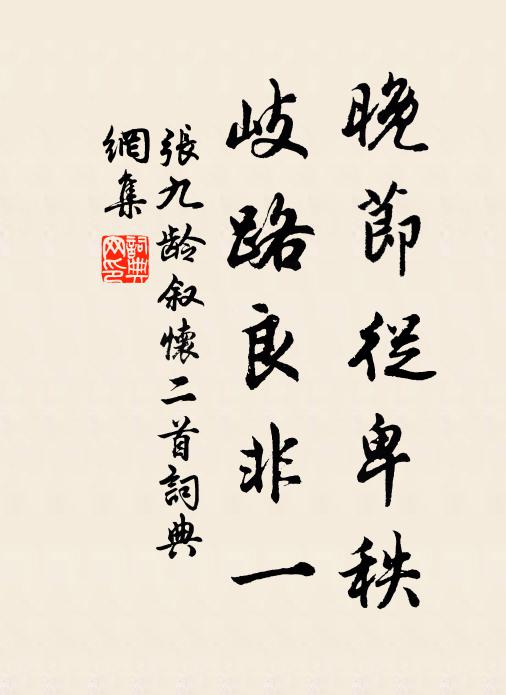 晚節從卑秩
岐路良非一
張九龄叙懷二首詞典
網集
詞典
网印